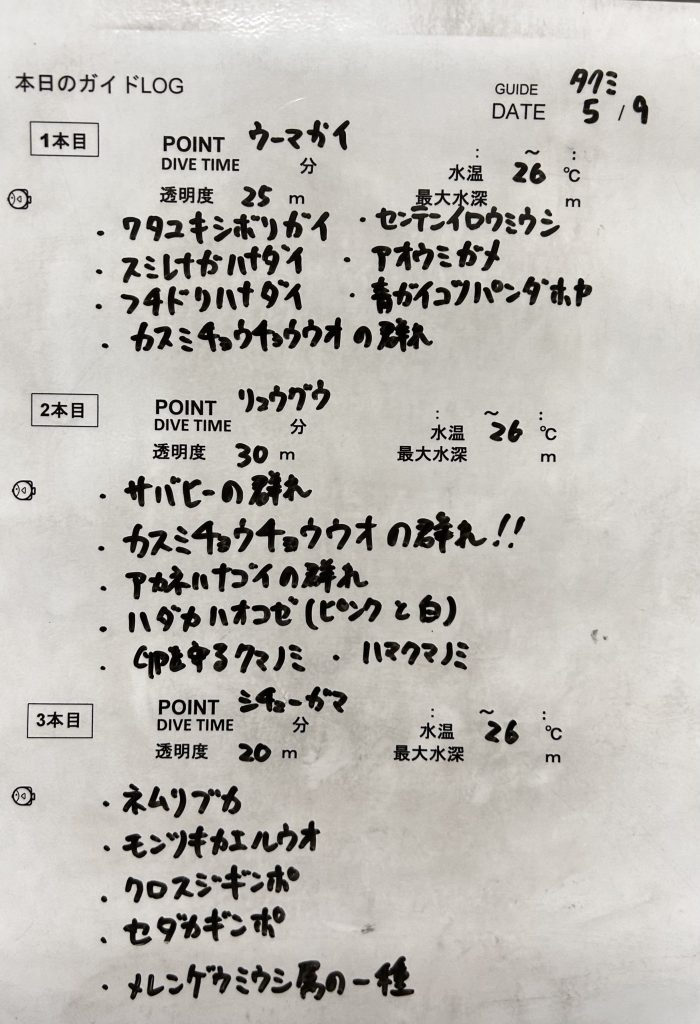 本日のガイドLOG
GUIDE タクミ
DATE 5/9
1本目 POINT ウーマガイ : ～ :
DIVE TIME 分 水温 26 ℃
透明度 25 m 最大水深 m
・ワタユキシボリガイ ・センテンイロウミウシ
・スミレナガハナダイ ・アオウミガメ
・フチドリハナダイ ・青ガイコツパンダホヤ
・カスミチョウチョウウオの群れ
2本目 POINT リュウグウ : ～ :
DIVE TIME 分 水温 26 ℃
透明度 30 m 最大水深 m
・サバヒーの群れ
・カスミチョウチョウウオの群れ!!
・アカネハナゴイの群れ
・ハダカハオコゼ(ピンクと白)
・卵を守るクマノミ ・ハマクマノミ
3本目 POINT シチューガマ : ～ :
DIVE TIME 分 水温 26 ℃
透明度 20 m 最大水深 m
・ネムリブカ
・モンツキカエルウオ
・クロスジギンポ
・セダカギンポ
・メレンゲウミウシ属の一種